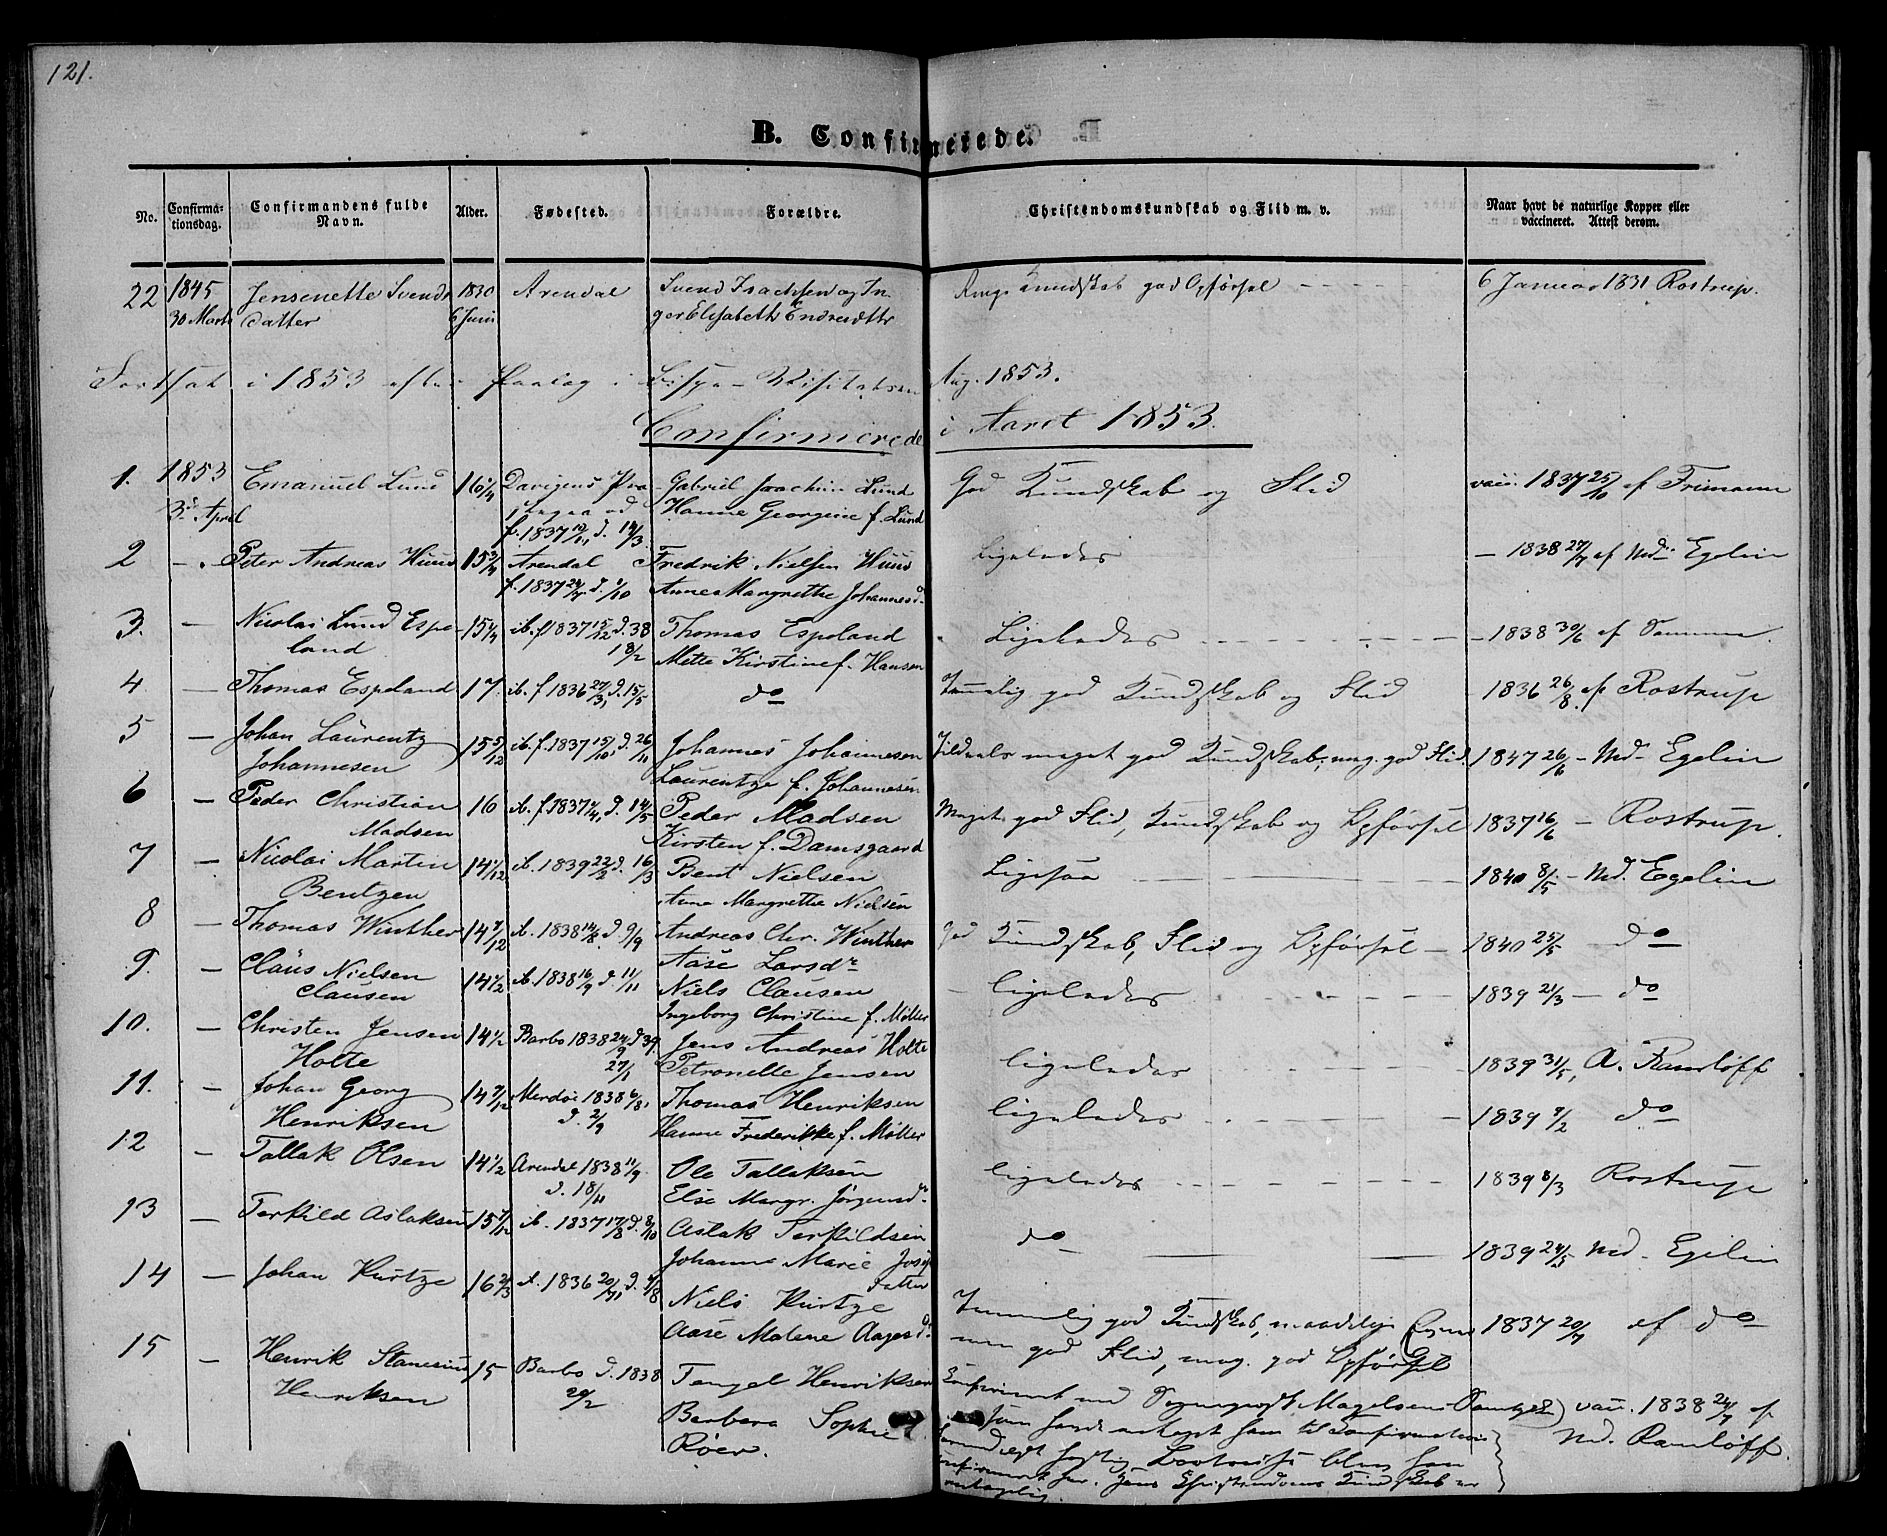 121.
B. Confirmerede.
No. Confirmationsdag. Confirmandens fulde Navn. Alder. Fødested. Forældre. Christendomskundskab og Flid m. v. Naar havt de naturlige Kopper eller vaccineret. Attest derom.
22 1845 Jensenette Svends 1830 Arendal Svend Isachsen og In Kundskab god Opførsel 6 Januar 1831 Rostrup.
30 Marts datter 6 Juni gerElisabeth Endresdttr
Fortsat i 1853 efter Paalag i Bispe-Visitatsen Aug. 1853.
Confirmerede i Aaret 1853.
1. 1853 Emanuel Lund 16 1/4 Gabriel Joachim Lund God Kundskab og Flid vacc. 1837 25/10 af Frimann
3die April f. 1837 d. 14/3. Hanne Georgine f. Lund
2 - Peter Andreas Huus 15 3/4 Arendal Fredrik Nielsen Huus Ligeledes - 1838 27/7 af Md. Egelin
f. 1837 24/7 d. 1/10 Anne Margrethe Johannesd.
3. - Nicolai Lund Espe- 15 1/4 ib. f 1837 15/12 d. 38 Thomas Espeland Ligeledes - 1838 30/6 af
land 18/2 Mette Kirstine f. Hansen
4 - Thomas Espeland 17. ib. f 1836 27/3, d. 15/5 do Temmelig god Kundskab og Flid - 1836 26/8. af Rostrup
5 - Johan Laurentz 15 5/12 ib. f. 1837 15/10 d. 26/11 Johannes Johannesen meget god Kundskab, mag. god Flid 1847 26/6 - Md. Egelin
Johannesen Laurentze f. Johannesen
6 - Peder Christian 16 ib. f. 1837 4/4, d. 14/5 Peder Madsen Meget god Flid, Kundskab og Opførsel 1837 16/6 - Rostrup.
Madsen Kirsten f. Damsgaard
7 - Nicolai Martin 14 1/12 ib. 1839 22/2 d. 16/3 Bent Nielsen Ligesaa 1840 8/5 - Md. Egelin
Bentzen Anne Margrethe Nielsen
8 - Thomas Winther 14 7/12 ib. 1838 14/8 d. 9/9 Andreas Chr. Winther God Kundskab, Flid og Opførsel - 1840 25/5 - do
Aase Larsdr
9. - Claus Nielsen 14 1/2 ib. 1838 16/9 d. 11/11 Niels Clausen ligeledes 1839 2/3 - do
Clausen Ingeborg Christine f. Møller
10. - Christen Jensen 14 1/2 Barbo 1838 24/9 d 39. Jens Andreas Holte ligeledes 1839 31/5, A. Ramløff
Holte 27/1 Petronelle Jensen
11. - Johan Georg 14 7/12 Merdøe 1838 6/8, Thomas Henriksen ligeledes 1839 9/2 do
Henriksen d. 2/9 Hanne Frederikke f. Møller
12 - Tallak Olsen 14 1/2 Arendal 1838 11/9. Ole Tallaksen ligeledes 1839 8/3 Rostrup
d. 18/11 Else Margr. Jørgensd.
13 - Terkild Aslaksen 15 7/12 ib. 1837 17/8 d. 8/10 Aslak Terkildsen do 1839 24/5 Md. Egelin
Johanne Marie Josef
datter
14 - Johan Kurtze 16 2/3 ib. 1836 20/7, d. 4/8 Niels Kurtze Temmelig god Kundskab, maadelig 1837 20/7 af do
Aase Malene Aagesd. god Flid, mag. god Opførsel
15 - Henrik Stanesius 15 Barbo d. 1838 Tengel Henriksen Confirmeret med Sognepræst Magelsens Samtykke) vacc. 1838 24/7 af
Henriksen 20/2 Barbera Sophie som havde antaget ham til Confirmation Md. Ramløff.
Røer. hastig blev han
confirmeret her. Hans Christendoms Kundskab er
antagelig.